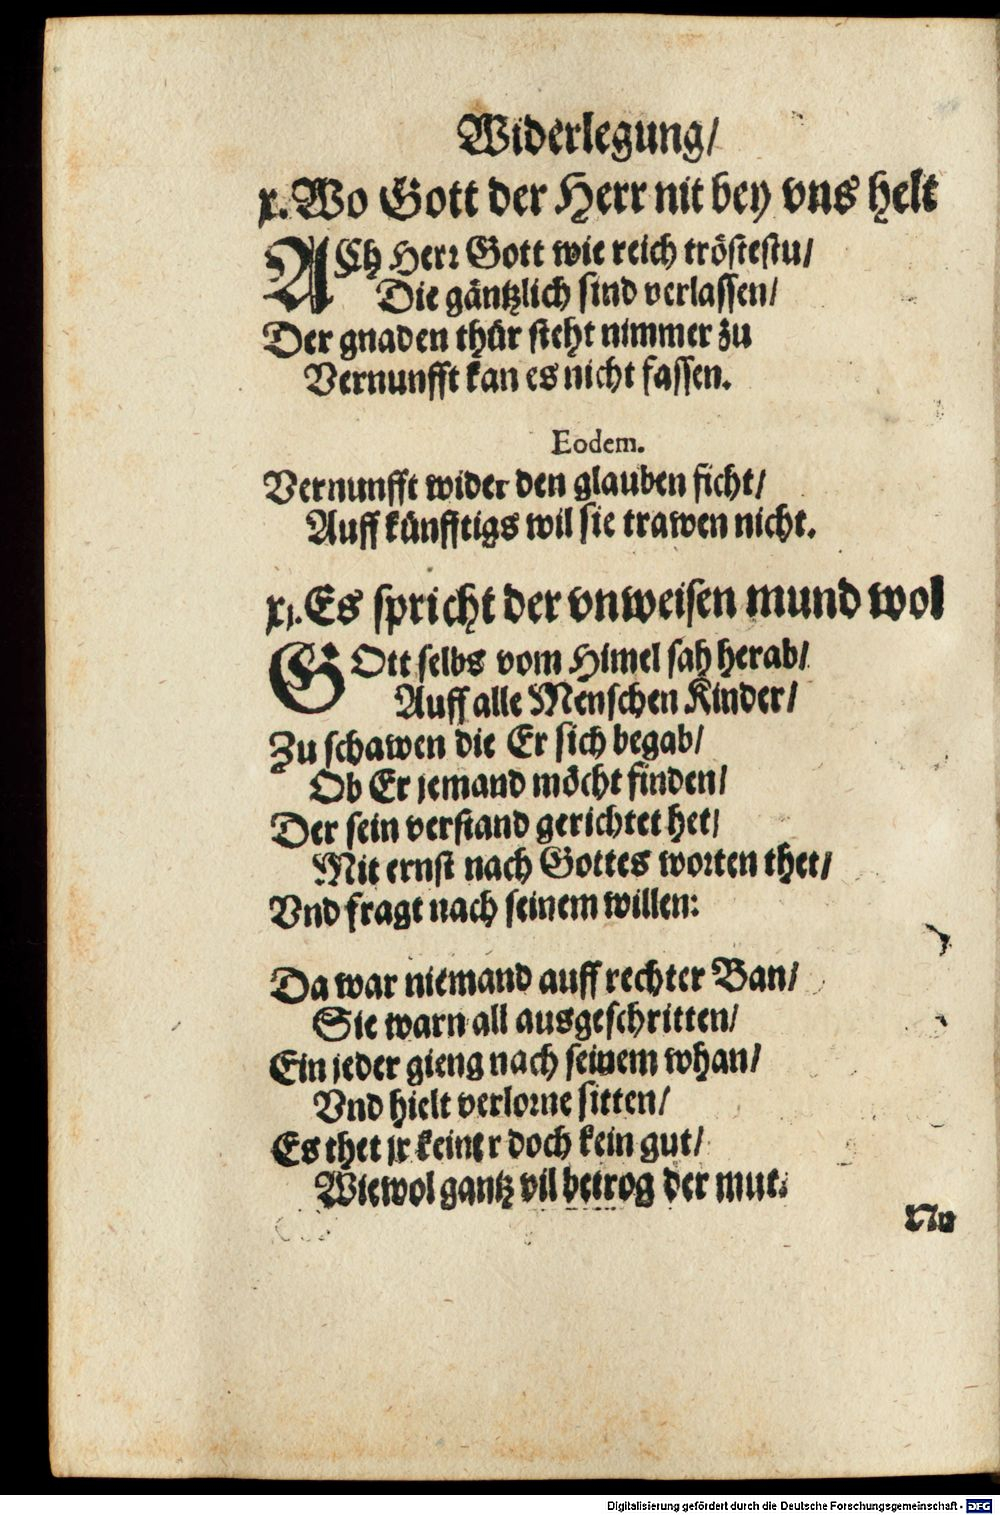 Widerlegung/
x. Wo Gott der Herr nit bey vns helt
ACh Herr Gott wie reich tröstestu/
Die gäntzlich sind verlassen/
Der gnaden thür steht nimmer zu
Vernunfft kan es nicht fassen.
Eodem.
Vernunfft wider den glauben ficht/
Auff künfftigs wil sie trawen nicht.
xj. Es spricht der vnweisen mund wol
GOtt selbs vom Himel sah herab/
Auff alle Menschen Kinder/
Zu schawen die Er sich begab/
Ob Er jemand möcht finden/
Der sein verstand gerichtet het/
Mit ernst nach Gottes worten thet/
Vnd fragt nach seinem willen:
Da war niemand auff rechter Ban/
Sie warn all ausgeschritten/
Ein jeder gieng nach seinem whan/
Vnd hielt verlorne sitten/
Es thet jr keiner doch kein gut/
Wiewol gantz vil betrog der mut.
Nu
Digitalisierung gefördert durch die Deutsche Forschungsgemeinschaft - DFG